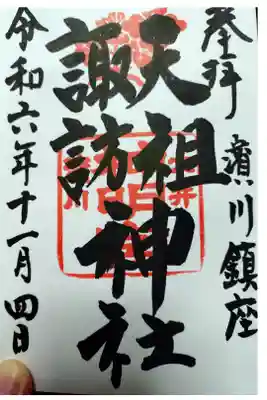 奉拝 濱川鎮座
天祖
諏訪神社
令和六年十一月四日